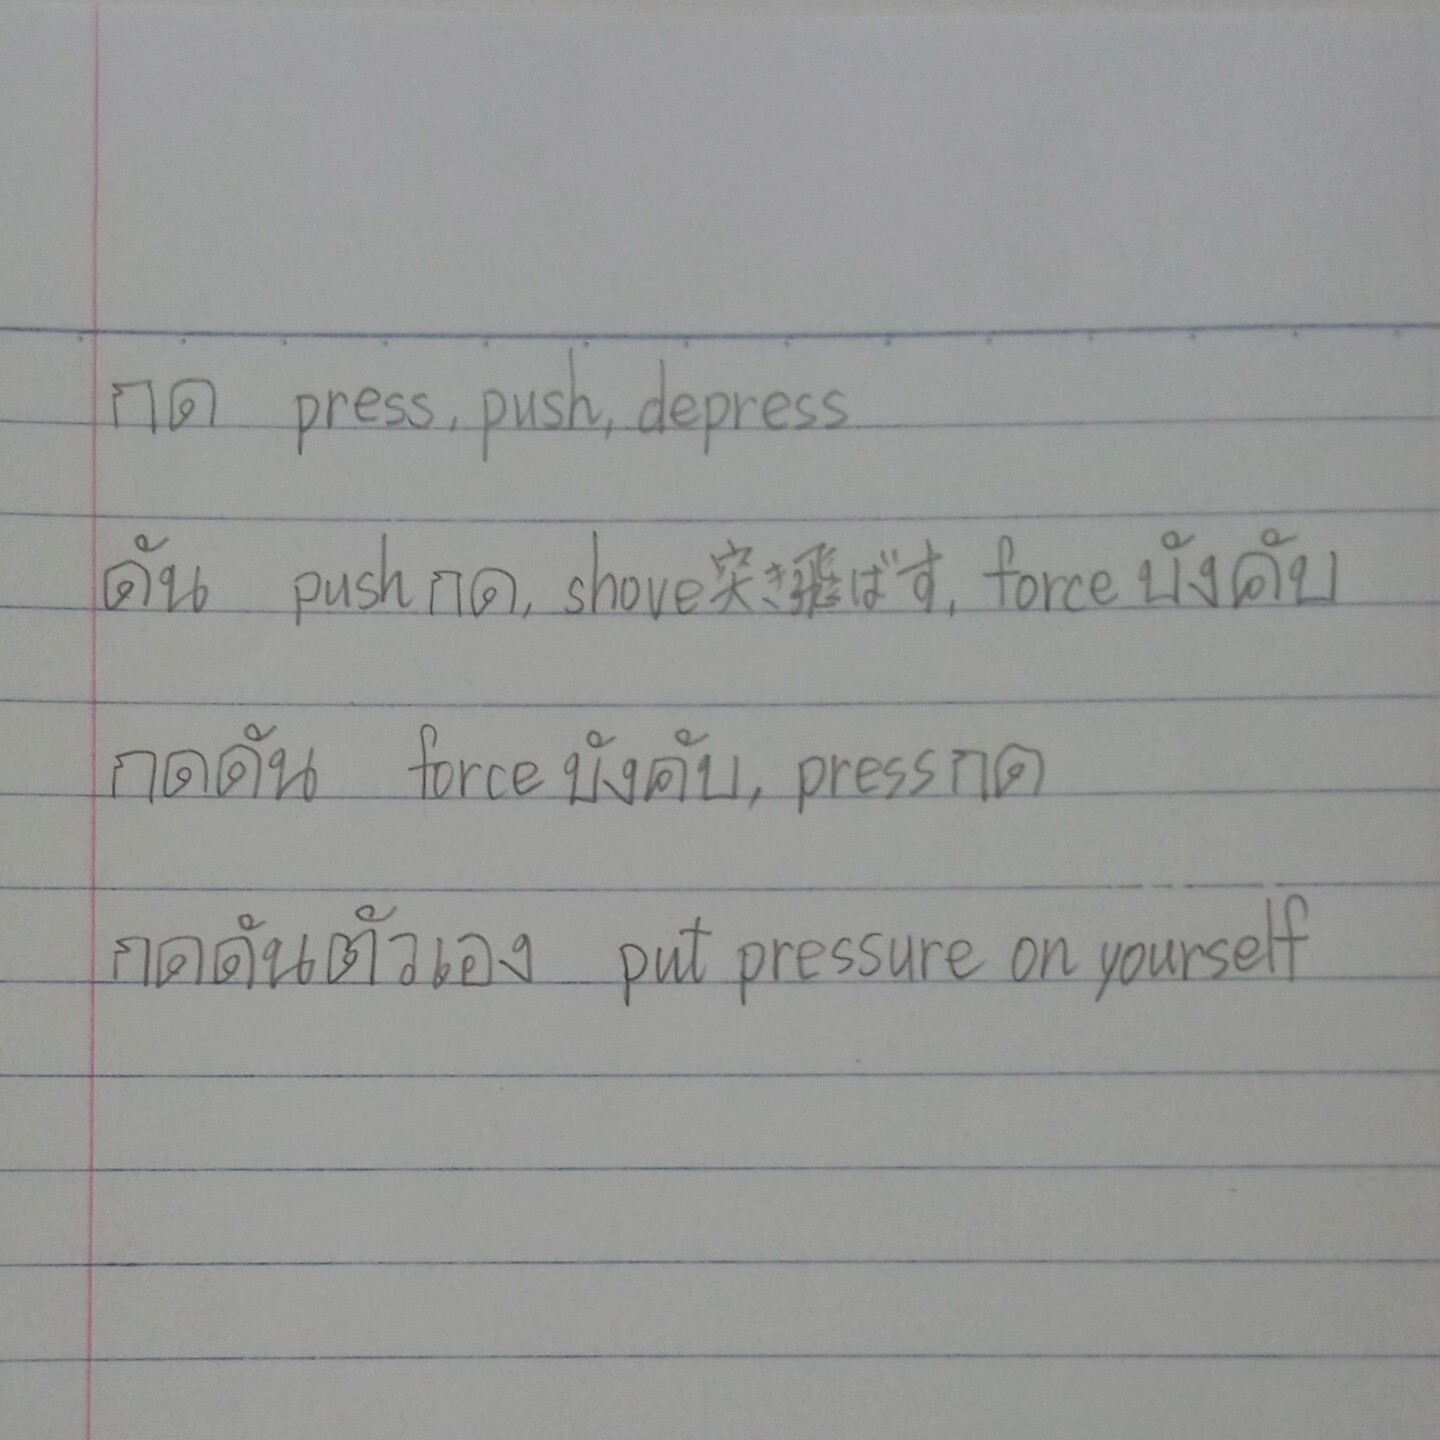 กด press, push, depress
ดัน push กด, shove 突き飛ばす, force บังคับ
กดดัน force บังคับ, press กด
กดดันตัวเอง put pressure on yourself